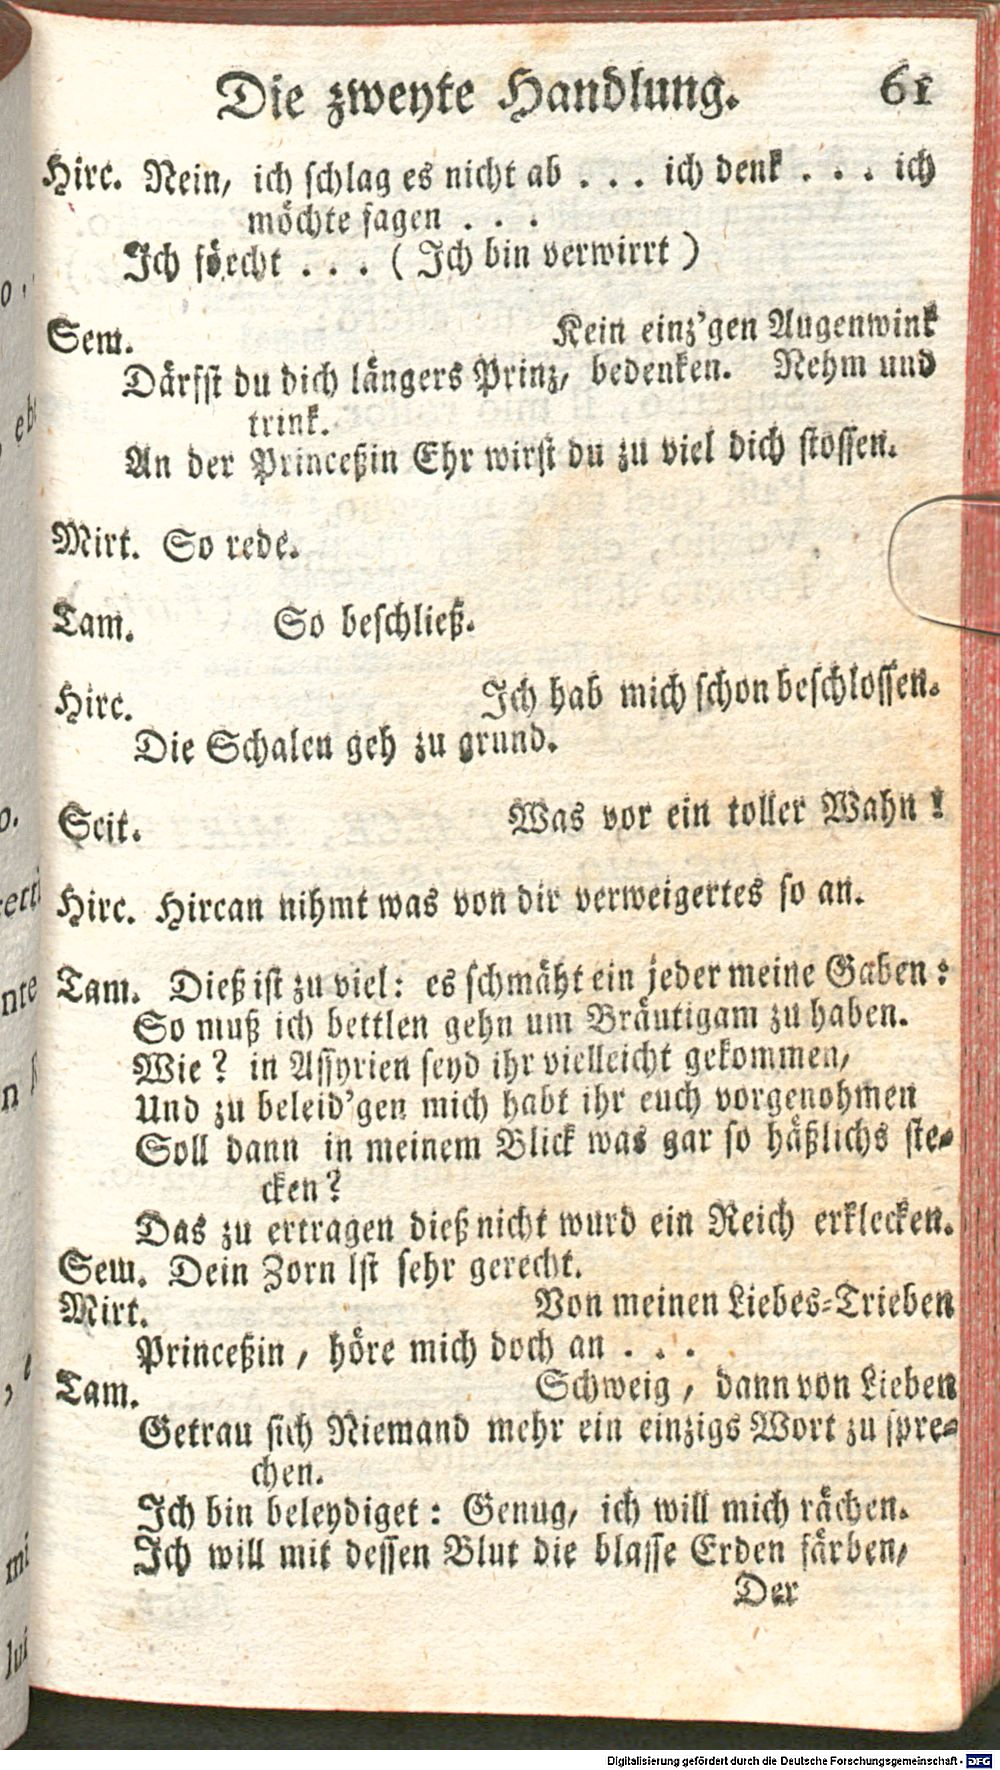 Die zweyte Handlung. 61
Hirc. Nein, ich schlag es nicht ab . . . ich denk . . . ich
möchte sagen . . .
Ich förcht . . . ( Ich bin verwirrt )
Sem. Kein einz'gen Augenwink
Därfst du dich längers Prinz, bedenken. Nehm und
trink.
An der Princeßin Ehr wirst du zu viel dich stossen.
Mirt. So rede.
Tam. So beschließ.
Hirc. Ich hab mich schon beschlossen.
Die Schalen geh zu grund.
Scit. Was vor ein toller Wahn !
Hirc. Hircan nihmt was von dir verweigertes so an.
Tam. Dieß ist zu viel: es schmäht ein jeder meine Gaben:
So muß ich bettlen gehn um Bräutigam zu haben.
Wie? in Assyrien seyd ihr vielleicht gekommen,
Und zu beleid'gen mich habt ihr euch vorgenohmen
Soll dann in meinem Blick was gar so häßlichs ste-
cken?
Das zu ertragen dieß nicht wurd ein Reich erklecken.
Sem. Dein Zorn Ist sehr gerecht.
Mirt. Von meinen Liebes-Trieben
Princeßin, höre mich doch an . . .
Tam. Schweig, dann von Lieben
Getrau sich Niemand mehr ein einzigs Wort zu spre-
chen.
Ich bin beleydiget: Genug, ich will mich rächen.
Ich will mit dessen Blut die blasse Erden färben,
Der
o.
ebe
o.
nte
n
mi
lui
Digitalisierung gefördert durch die Deutsche Forschungsgemeinschaft - DFG